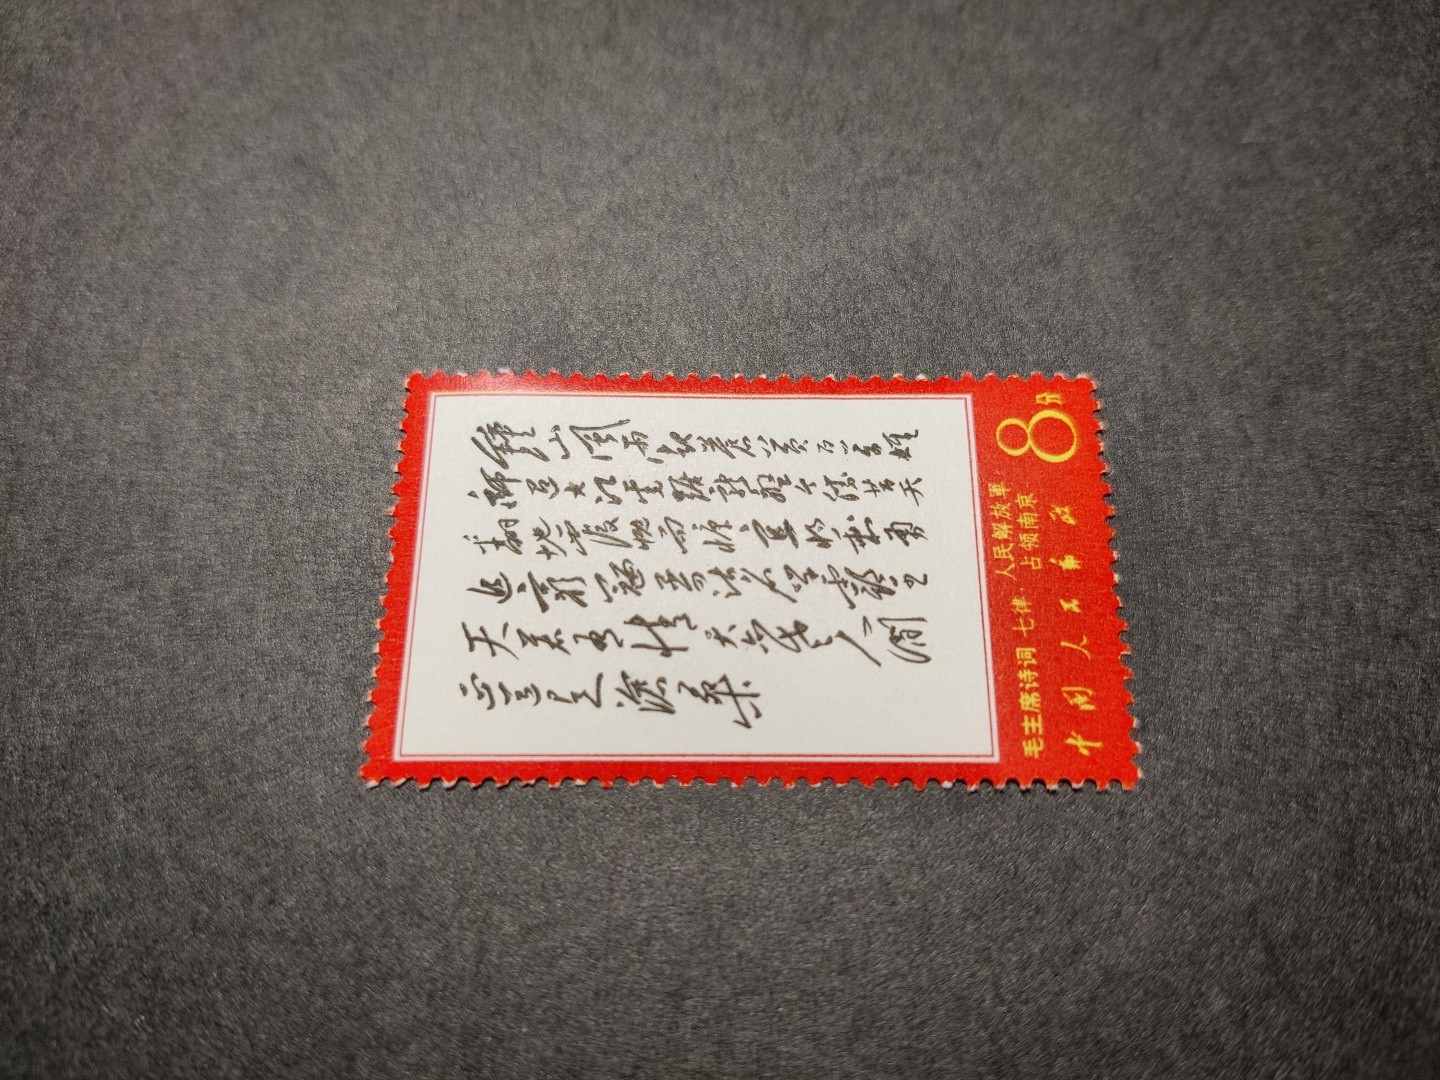 鐘山風雨起蒼黃百萬雄
師過大江虎踞龍盤今勝昔天
翻地覆慨而慷宜將剩勇
追窮寇不可沽名學霸王
天若有情天亦老人間
正道是滄桑
毛主席诗词 七律·人民解放軍
占领南京
中国人民邮政
8分